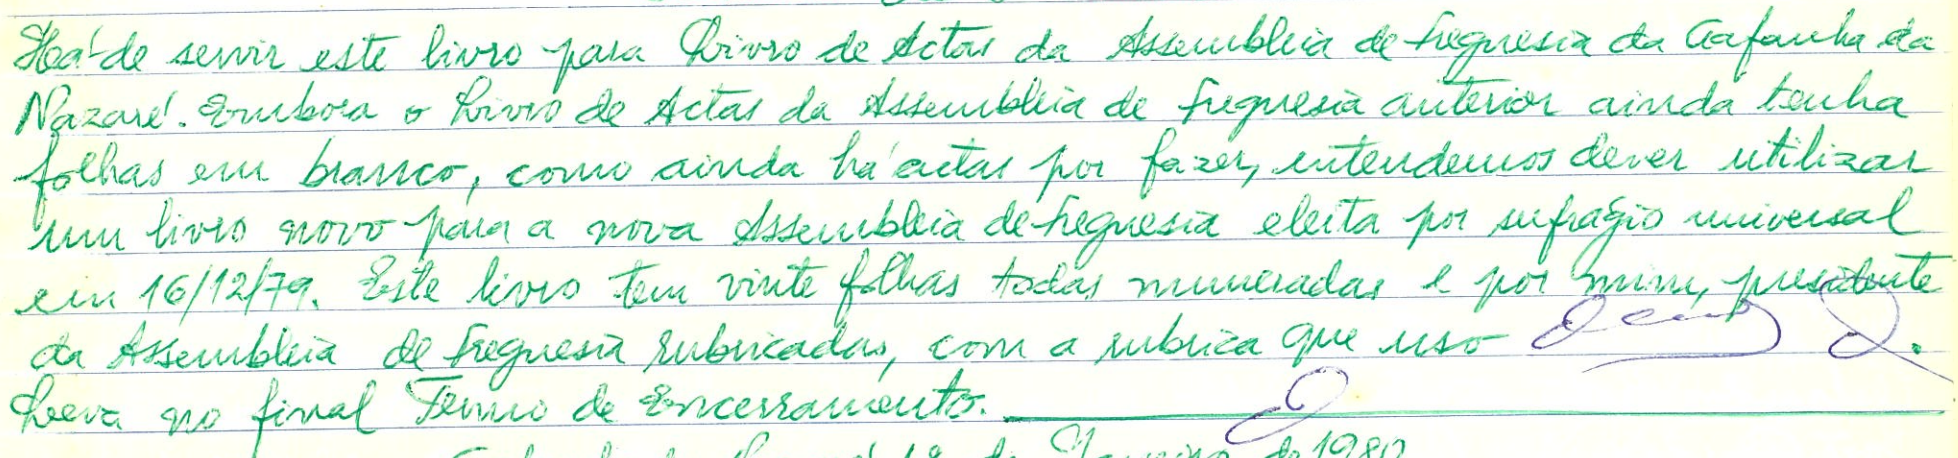 Há-de servir este livro para Livro de Actas da Assembleia de Freguesia da Gafanha da
Nazaré. Embora o Livro de Actas da Assembleia de Freguesia anterior ainda tenha
folhas em branco, como ainda há actas por fazer, entendemos dever utilizar
um livro novo para a nova Assembleia de Freguesia eleita por sufrágio universal
em 16/12/79. Este livro tem vinte folhas todas numeradas e por mim, presidente
da Assembleia de Freguesia rubricadas, com a rubrica que uso
Leva no final Termo de Encerramento.
de Janeiro de 1980